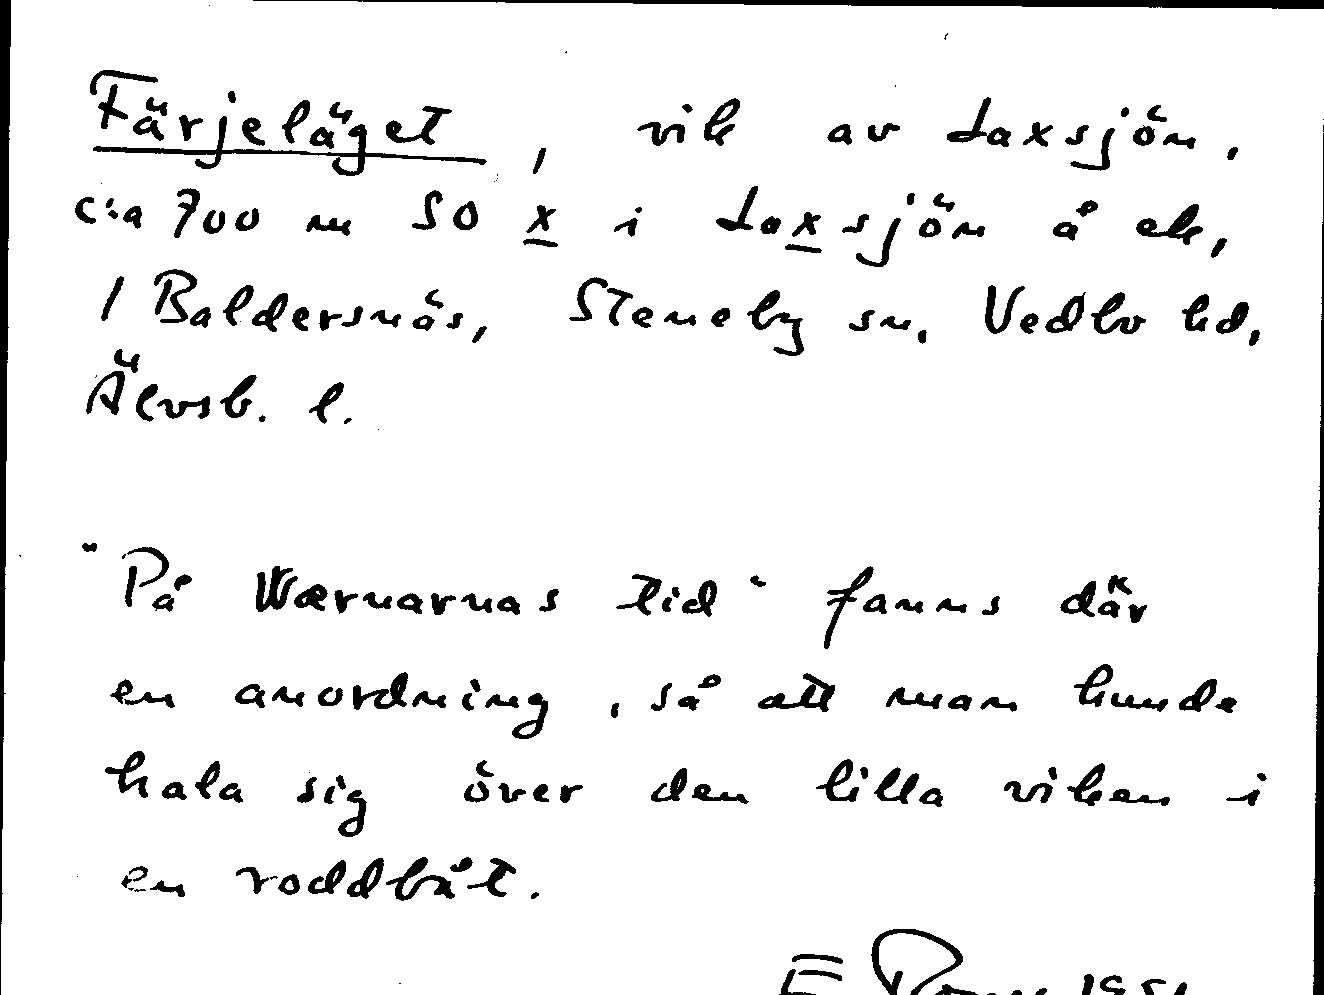 Färjeläget, vik av Laxsjön,
c:a 700 m SO x i Laxsjön å ek,
1 Baldersnäs, Steneby sn, Vedbo hd,
Älvsb. l.
"På Wærnarnas tid" fanns där
en anordning, så att man kunde
hala sig över den lilla viken i
en roddbåt.
E